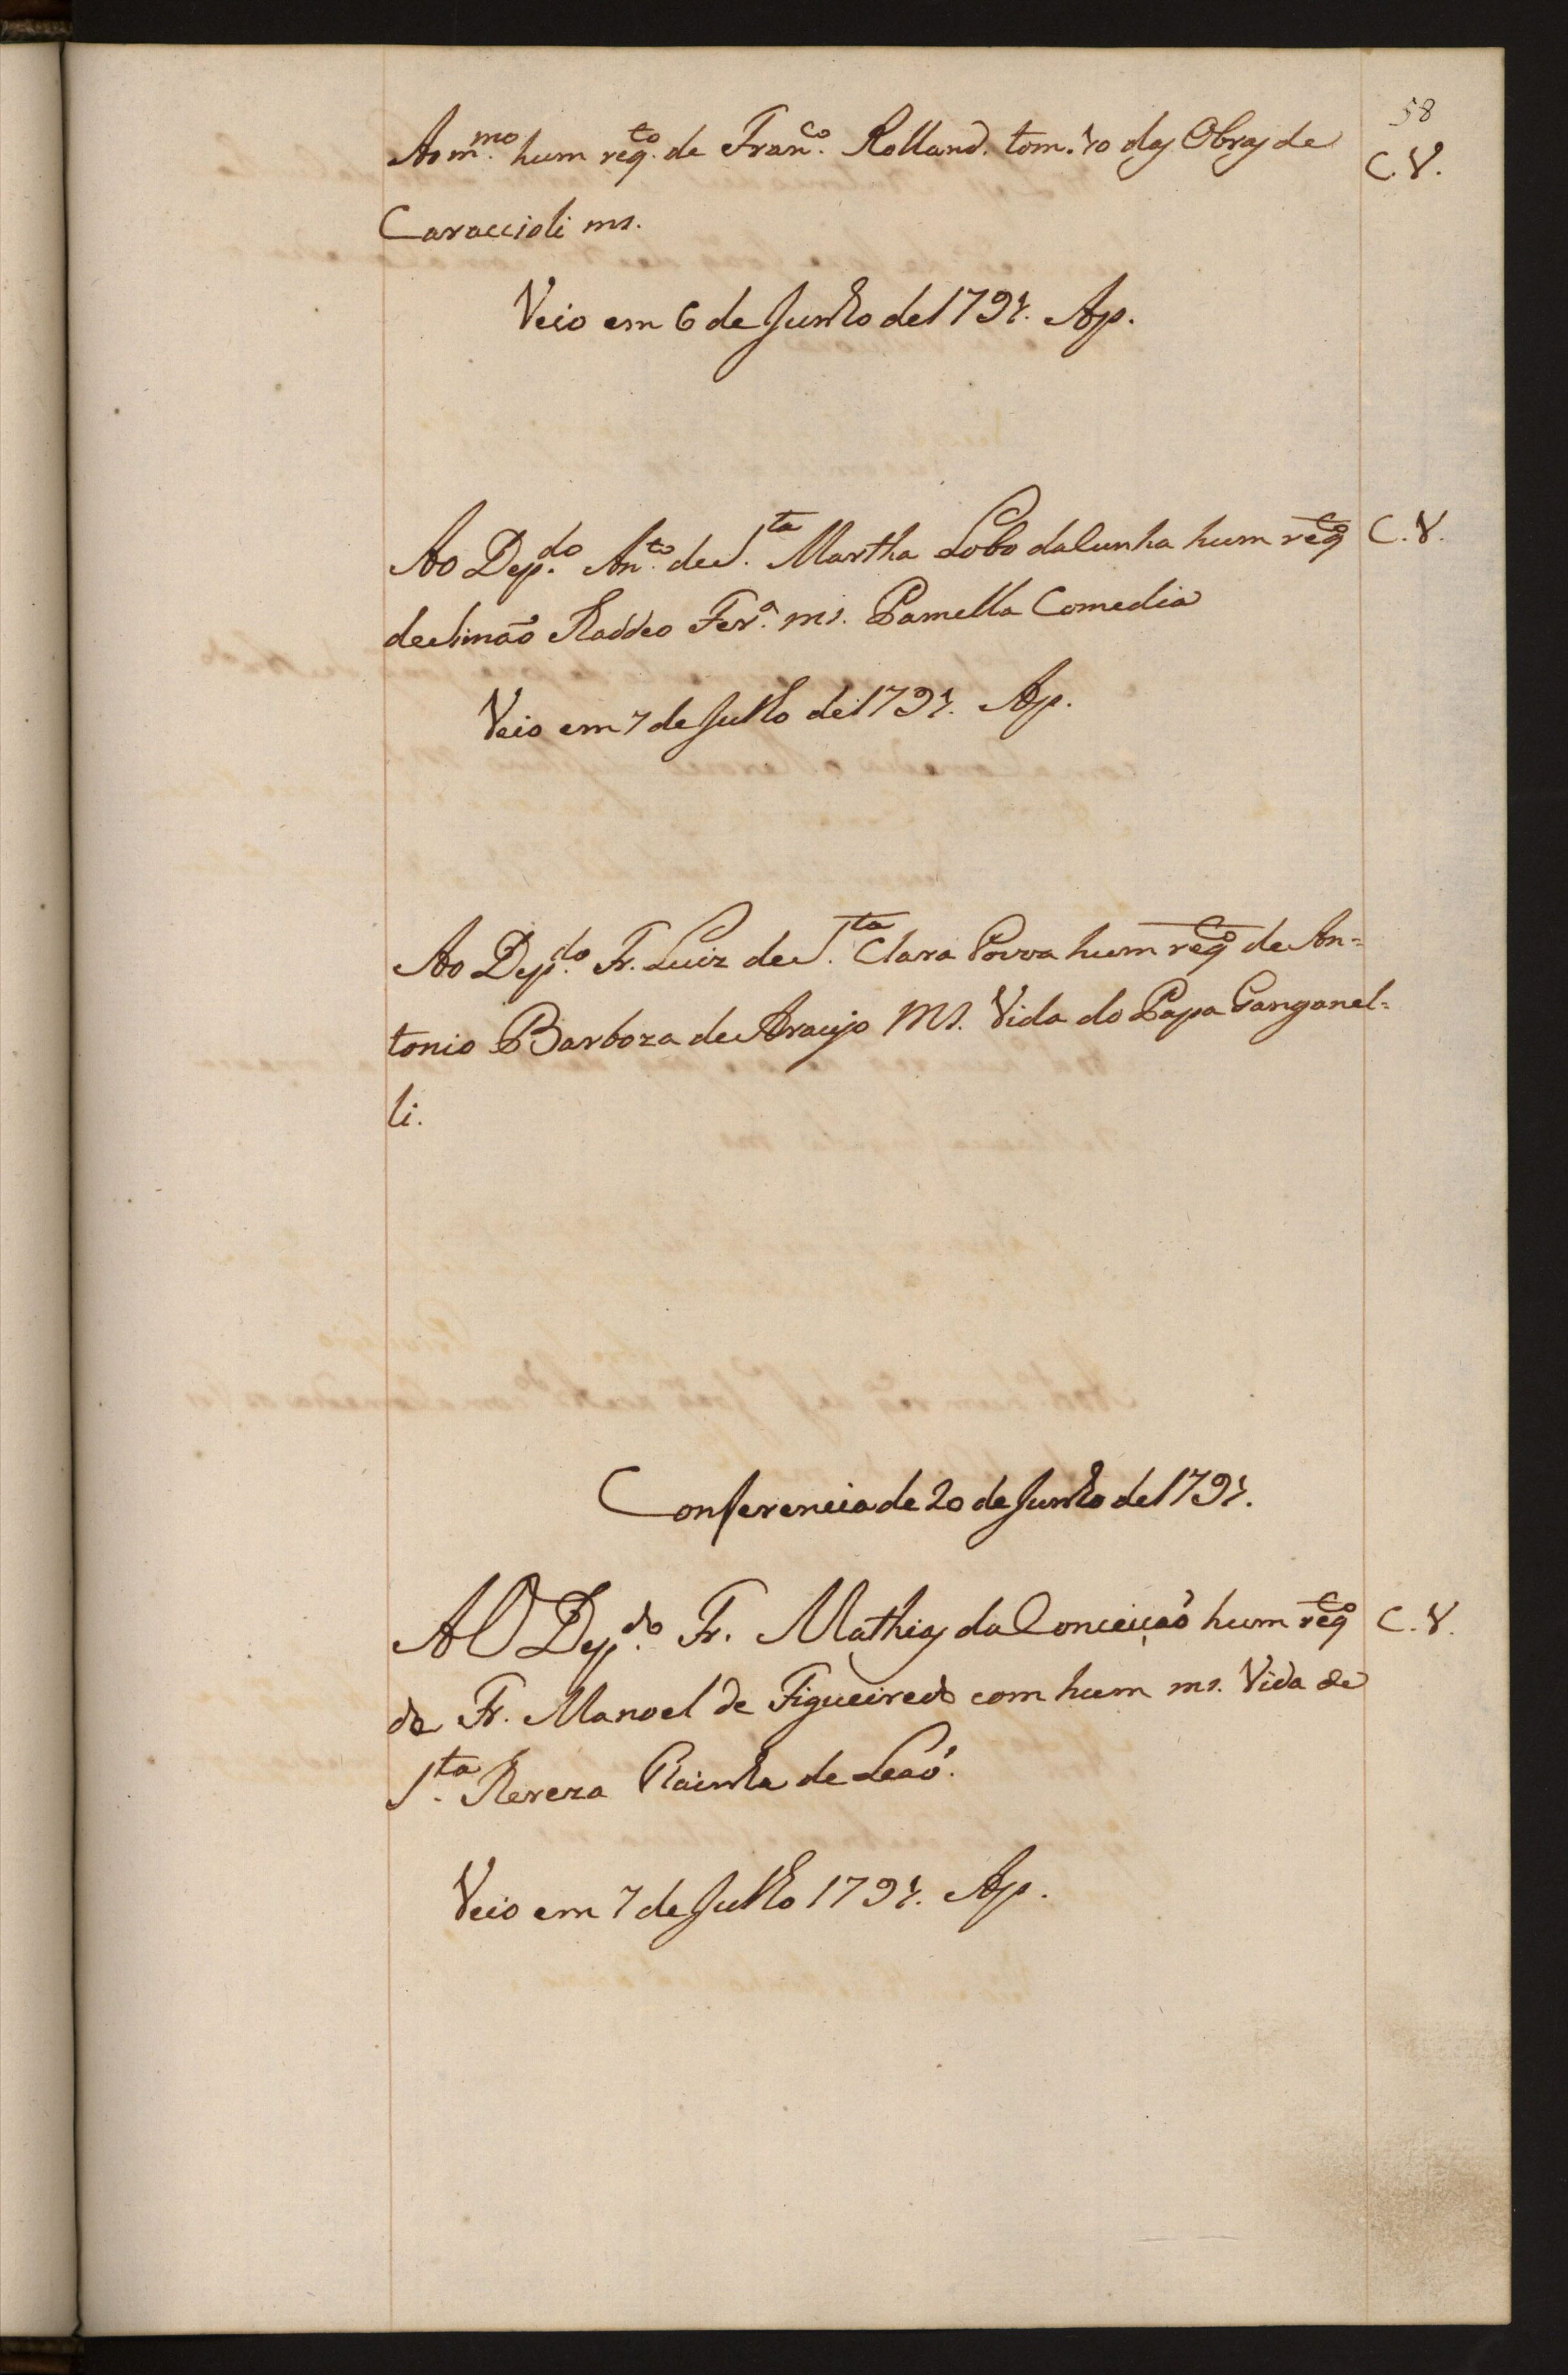 58
Ao m.mo hum reqto. de Franco. Rolland. tom. 10 das Obras de C.V.
Caraccioli ms.
Veio em 6 de Junho de 1791. Ap.
Ao Dep.do Anto. de S.ta Martha Lobo da Cunha hum reqto C.V.
de Simaõ Taddeo Fera. ms. Pamella Comedia
Veio em 7 de Julho de 1791. Ap.
Ao Dep.do Fr. Luiz de S.ta Clara Povoa hum reqto de An=
tonio Barboza de Araujo MS. Vida do Papa Ganganel=
li.
Conferencia de 20 de Junho de 1791.
AO Dep.do Fr. Mathias da Conceiçaõ hum reqto C.V.
de Fr. Manoel de Figueiredo com hum ms. Vida de
S.ta Tereza Rainha de Leaõ.
Veio em 7 de Julho 1791. Ap.